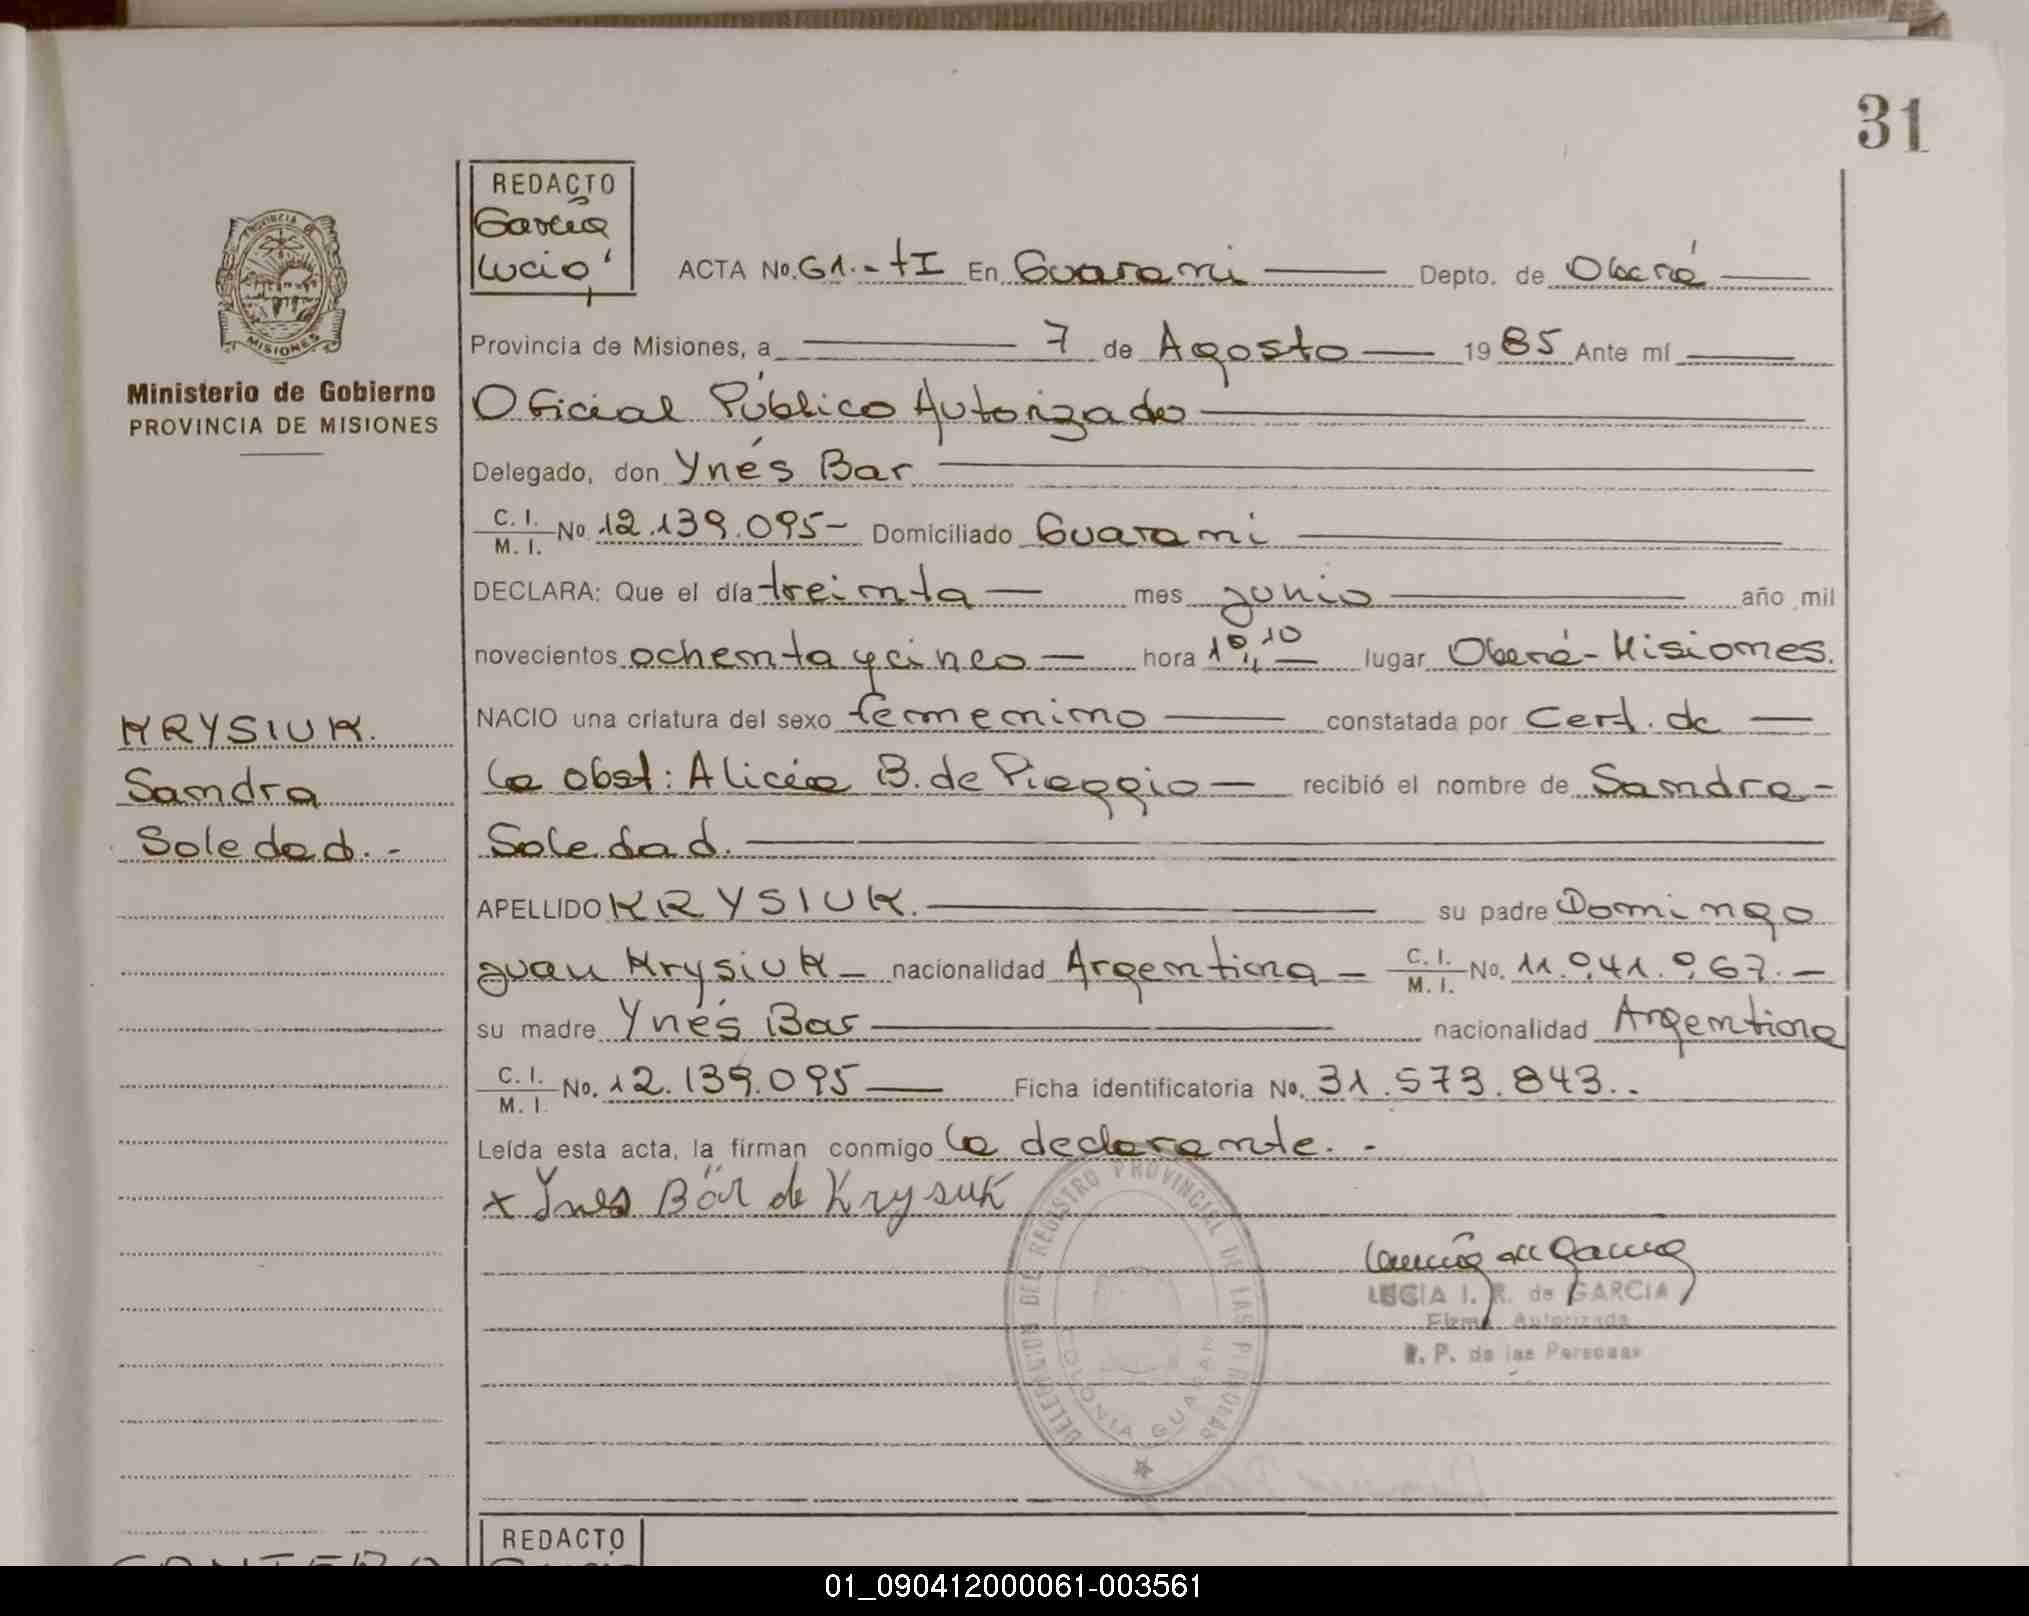 31
REDACTO
García
Lucía
PROVINCIA DE
MISIONES
Ministerio de Gobierno
PROVINCIA DE MISIONES
ACTA No. 61.- tI En Guarani Depto. de Oberá
Provincia de Misiones, a 7 de Agosto 1985 Ante mí
Oficial Público Autorizado
Delegado, don Ynés Bar
C. I. / M. I. No. 12.139.095- Domiciliado Guarani
DECLARA: Que el día treinta mes junio año mil
novecientos ochenta y cinco hora 10,10 lugar Oberá - Misiones.
NACIO una criatura del sexo femenino constatada por Cert. de
la obst: Alicia B. de Piaggio recibió el nombre de Sandra-
Soledad.
APELLIDO KRYSIUK. su padre Domingo
Juan Krysiuk nacionalidad Argentina C. I. / M. I. No. 11.041.067.-
su madre Ynés Bar nacionalidad Argentina
C. I. / M. I. No. 12.139.095 Ficha identificatoria No. 31.573.843..
Leída esta acta, la firman conmigo la declarante. -
x Ynes Bar de Krysuk
KRYSIUK.
Sandra
Soledad. -
DELEGACION DEL REGISTRO PROVINCIAL DE LAS PERSONAS
COLONIA GUARANI
LUCIA I. R. de GARCIA
Firma Autorizada
R. P. de las Personas
REDACTO
01_090412000061-003561